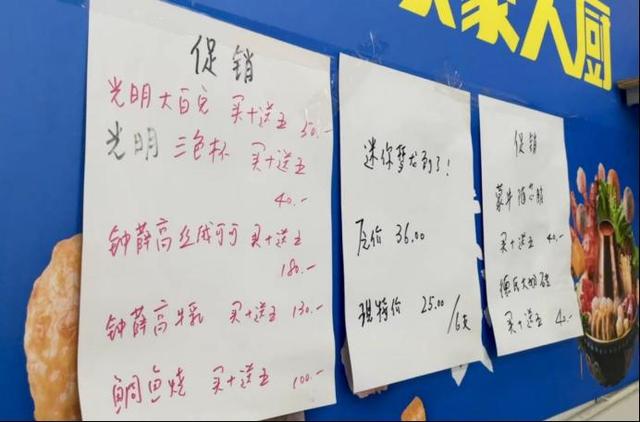 家人厨
促销
光明大白兔 买十送五 50.-
光明三色杯 买十送五
40.-
钟薛高丝绒可可 买十送五
180.-
钟薛高牛乳 买十送五 130.-
鲷鱼烧 买十送五 100.-
迷你梦龙到了!
原价 36.00
现特价 25.00
/6支
促销
蒙牛随芯
买十送五 40.-
德氏大
买十送五 40.-